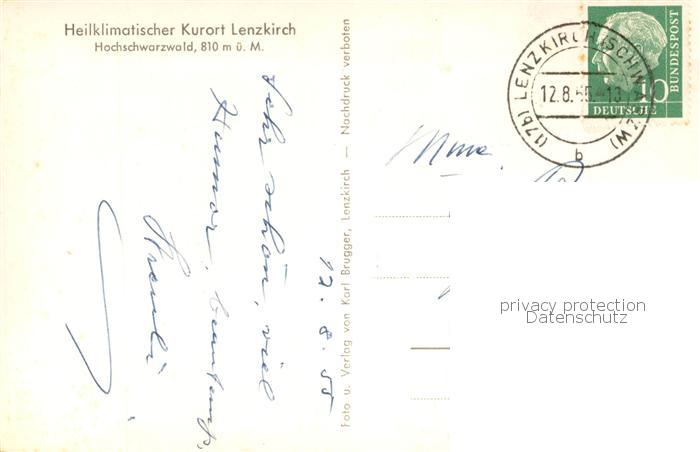 Heilklimatischer Kurort Lenzkirch
Hochschwarzwald, 810 m ü. M.
Sehr schön, viel
Humor,
12.8.55
Foto u. Verlag von Karl Brugger, Lenzkirch — Nachdruck verboten
(17b) LENZKIRCH (SCHWARZW)
12.8.55.-18
b
10
DEUTSCHE
BUNDESPOST
Mme
privacy protection
Datenschutz